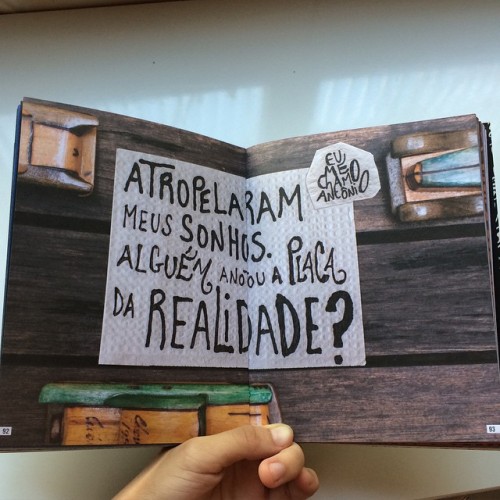 ATROPELARAM
MEUS SONHOS.
ALGUÉM ANOTOU A PLACA
DA REALIDADE?
EU
ME
CHAMO
ANTÔNIO
92
93